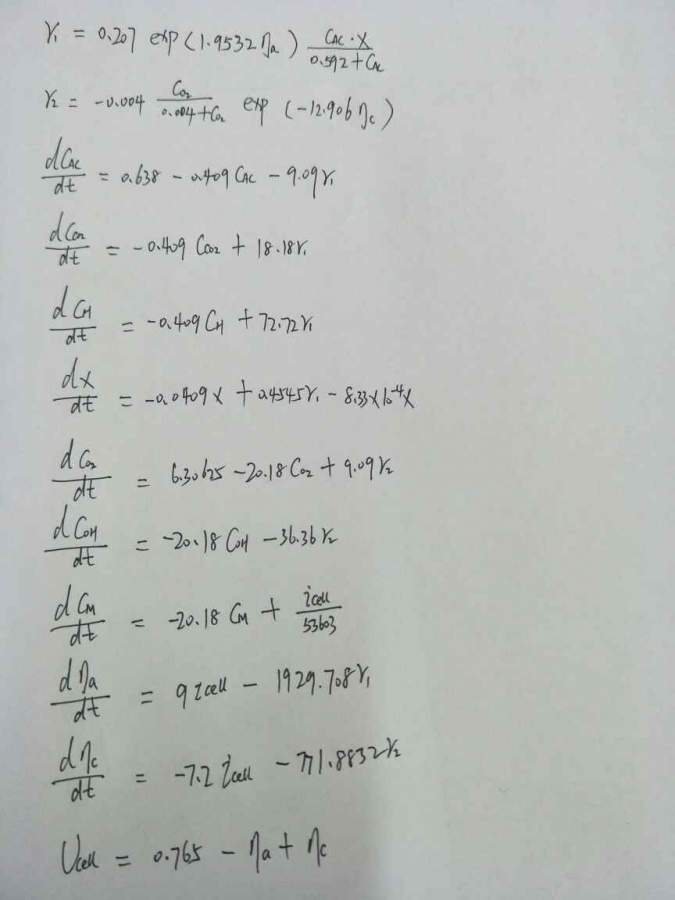 r₁ = 0.207 exp(1.9532ηₐ) (C_AC·X)/(0.592+C_AC)
r₂ = -0.004 C_O₂/(0.004+C_O₂) exp(-12.906η_c)
dC_AC/dt = 0.638 - 0.409C_AC - 9.09r₁
dC_CO2/dt = -0.409C_CO2 + 18.18r₁
dC_H/dt = -0.409C_H + 72.72r₁
dX/dt = -0.0409X + 0.4545r₁ - 8.33×10⁻⁴X
dC_O₂/dt = 6.30625 - 20.18C_O₂ + 9.09r₂
dC_OH/dt = -20.18C_OH - 36.36r₂
dC_M/dt = -20.18C_M + i_cell/53603
dηₐ/dt = 9i_cell - 1929.708r₁
dη_c/dt = -7.2i_cell - 771.8832r₂
U_cell = 0.765 - ηₐ + η_c